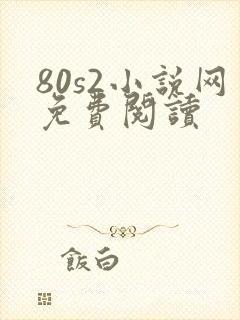 80s2小说网
免費閱讀
飯白